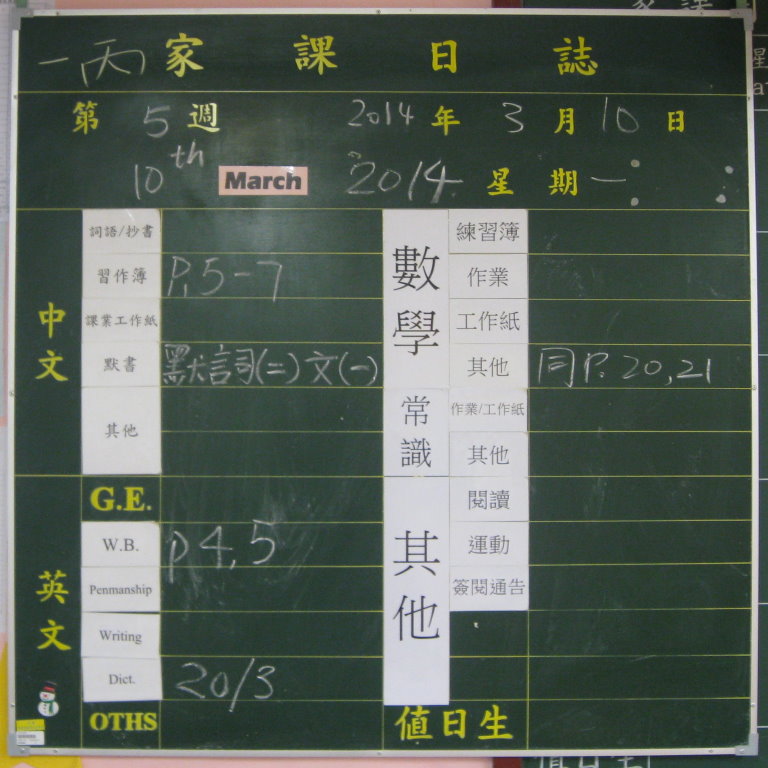 一丙家課日誌
第5週 2014年3月10日
10th March 2014 星期一
中文
詞語/抄書
習作簿 P.5-7
課業工作紙
默書 默詞(二)文(一)
其他
英文
G.E.
W.B. p 4,5
Penmanship
Writing
Dict. 20/3
OTHS
數學
練習簿
作業
工作紙
其他 同P.20,21
常識
作業/工作紙
其他
其他
閱讀
運動
簽閱通告
值日生